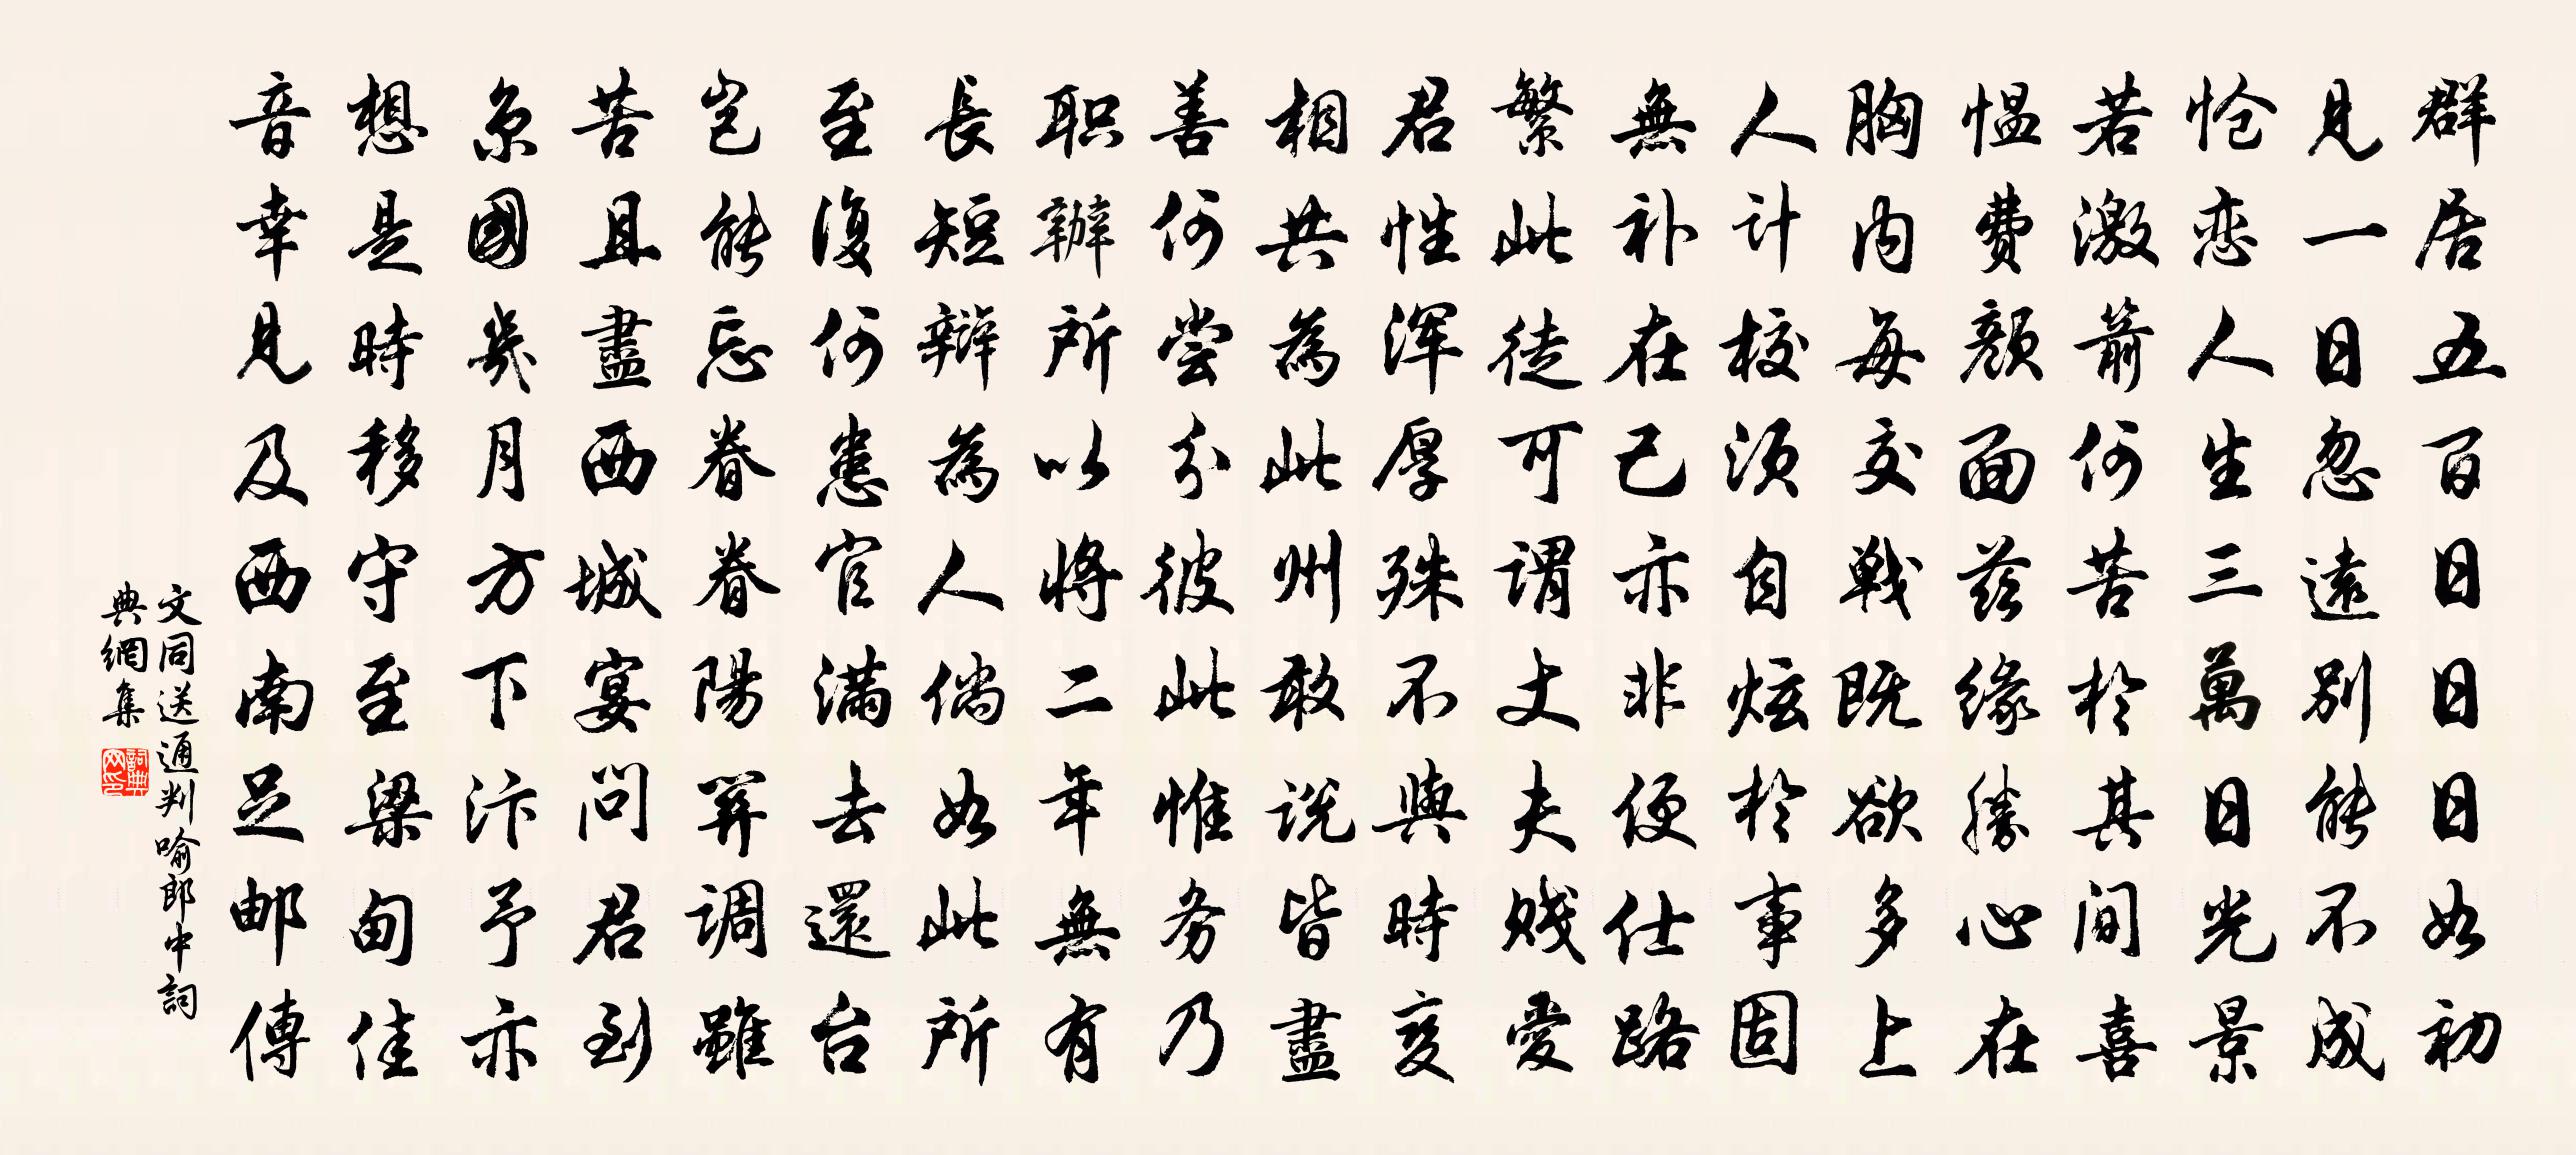 群居五百日日日如初
見一日忽遠別能不成
怆恋人生三萬日光景
若激箭何苦於其间喜
愠費顏面兹緣勝心在
胸内每交戰既欲多上
人计校须自炫於事固
無补在己亦非便仕路
繁此徒可謂丈夫贱愛
君性渾厚殊不與時变
相共為此州敢说皆盡
善何尝分彼此惟务乃
职辦所以將二年無有
長短辩為人倘如此所
至復何患官滿去還台
岂能忘眷眷陽關调雖
苦且盡西城宴问君到
京國幾月方下汴予亦
想是時移守至梁甸佳
音幸見及西南足邮傳
文同送通判喻郎中詞
典網集
詞典網印